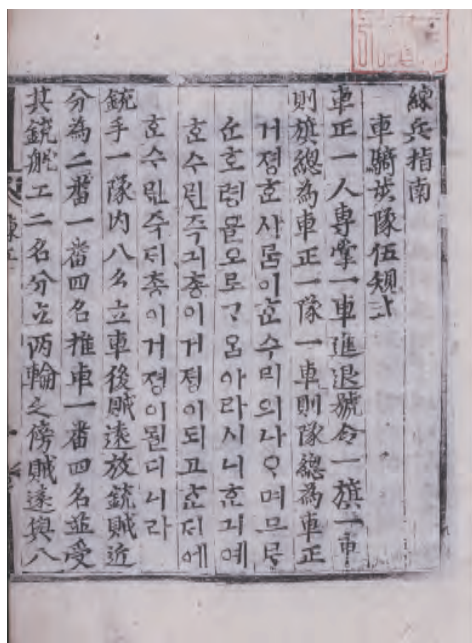 練兵指南
車騎旅隊伍規式
車正一人專掌一車進退號令一旗一車
則旗總為車正一隊一車則隊總為車正
거졍ᄒᆞᆫ사ᄅᆞᆷ이ᄒᆞᆫ수릐의나ᄋᆞ며므르
ᄂᆞᆫ호령을오로ᄀᆞᄋᆞᆷ아라시니ᄒᆞᆫ긔예
ᄒᆞᆫ수릐즉긔총이거졍이되고ᄒᆞᆫᄃᆡ예
ᄒᆞᆫ수릐즉ᄃᆡ총이거졍이될디니라
銃手一隊內八名立車後賊遠放銃賊近
分為二番一番四名推車一番四名並受
其銃舵工二名分立两輪之傍賊遠與八